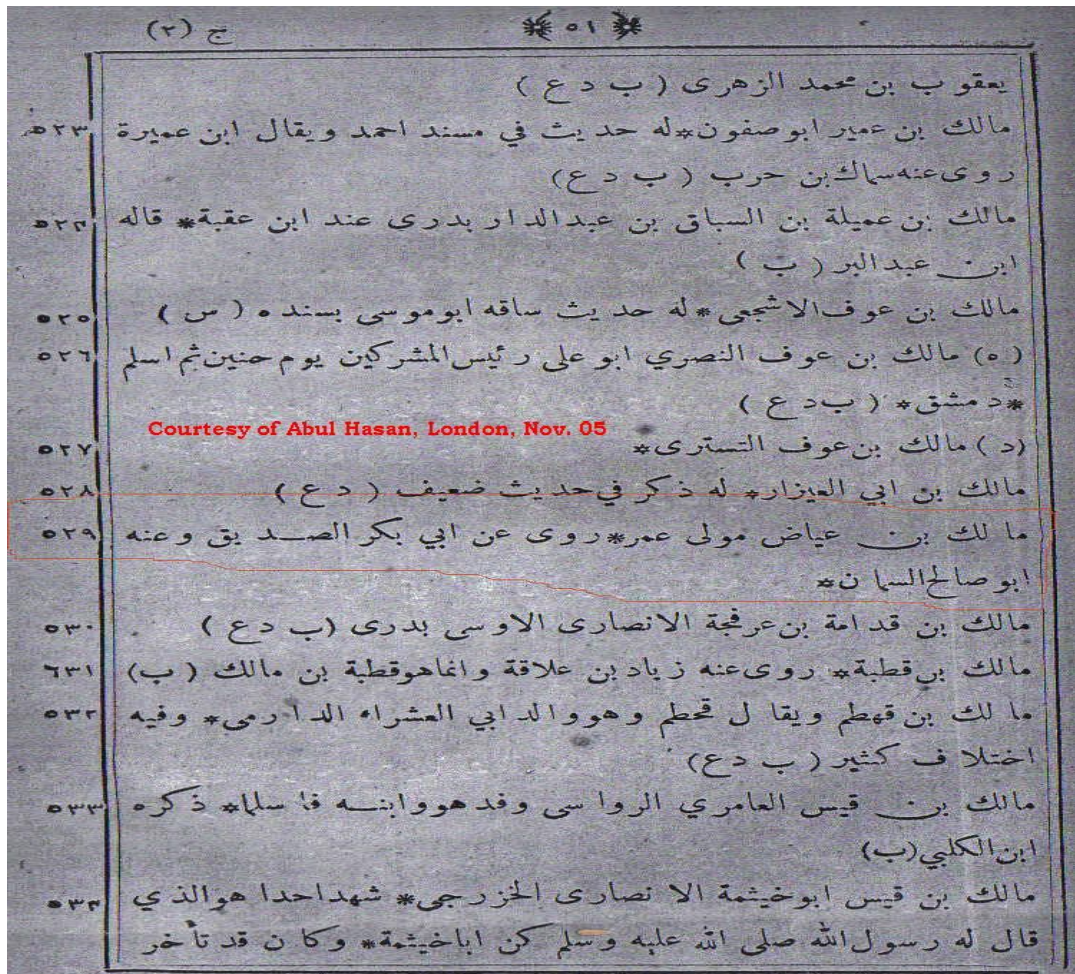 ج (٢) ❋ ٥١ ❋
يعقوب بن محمد الزهرى (ب د ع)
مالك بن عمير ابو صفون*له حديث في مسند احمد ويقال ابن عميرة ٥٢٣
روى عنه سماك بن حرب (ب د ع)
مالك بن عميلة بن السباق بن عبد الدار بدرى عند ابن عقبة* قاله ٥٢٤
ابن عبد البر (ب)
مالك بن عوف الاشجعى*له حديث ساقه ابو موسى بسنده (س) ٥٢٥
(ه) مالك بن عوف النصري ابو على رئيس المشركين يوم حنين ثم اسلم ٥٢٦
*دمشق* (ب د ع)
Courtesy of Abul Hasan, London, Nov. 05
(د) مالك بن عوف التسترى* ٥٢٧
مالك بن ابي العيزار* له ذكر في حديث ضعيف (د ع) ٥٢٨
مالك بن عياض مولى عمر*روى عن ابي بكر الصديق وعنه ٥٢٩
ابو صالح السمان*
مالك بن قدامة بن عرفجة الانصارى الاوسى بدرى (ب د ع) ٥٣٠
مالك بن قطبة* روى عنه زياد بن علاقة وانما هو قطبة بن مالك (ب) ٦٣١
مالك بن قهطم ويقال قحطم وهو والد ابي العشراء الدارمى* وفيه ٥٣٢
اختلاف كثير (ب د ع)
مالك بن قيس العامري الرواسى وفد هو وابنه فاسلما* ذكره ٥٣٣
ابن الكلبي (ب)
مالك بن قيس ابو خيثمة الانصارى الخزرجى* شهد احدا هو الذي ٥٣٤
قال له رسول الله صلى الله عليه وسلم كن اباخيثمة* وكان قد تأخر